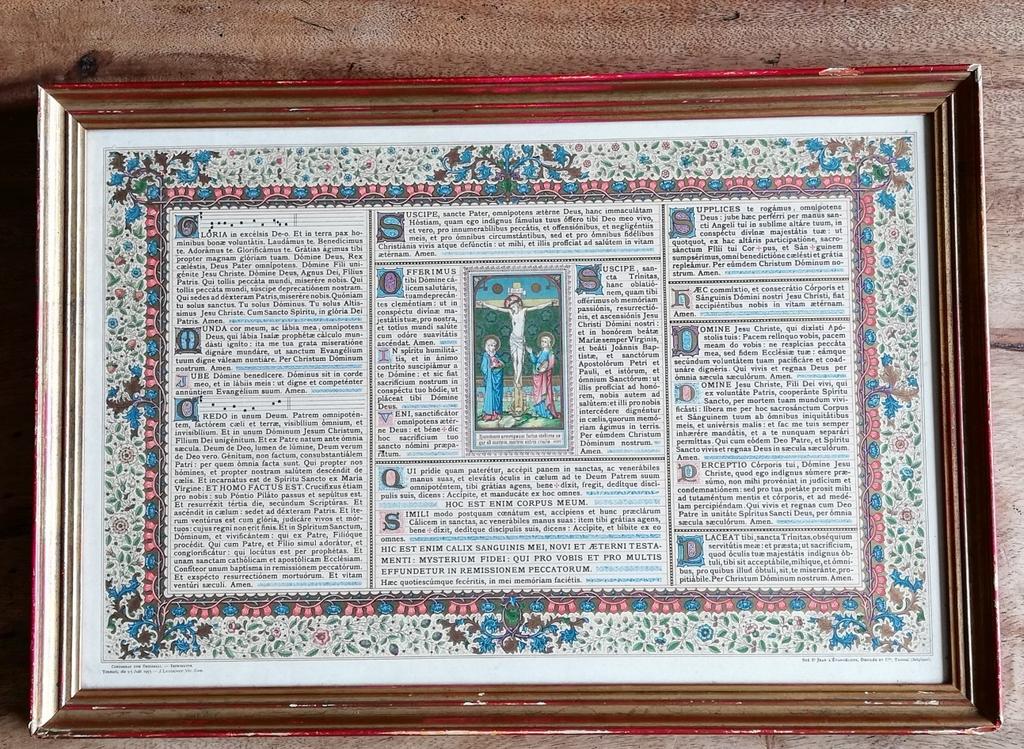 GLÓRIA in excélsis De-o. Et in terra pax ho-
mínibus bonæ voluntátis. Laudámus te. Benedícimus
te. Adorámus te. Glorificámus te. Grátias ágimus tibi
propter magnam glóriam tuam. Dómine Deus, Rex
cæléstis, Deus Pater omnípotens. Dómine Fili uni-
génite Jesu Christe. Dómine Deus, Agnus Dei, Fílius
Patris. Qui tollis peccáta mundi, miserére nobis. Qui
tollis peccáta mundi, súscipe deprecatiónem nostram.
Qui sedes ad déxteram Patris, miserére nobis. Quóniam
tu solus sanctus. Tu solus Dóminus. Tu solus Altís-
simus Jesu Christe. Cum Sancto Spíritu, in glória Dei
Patris. Amen.
MUNDA cor meum, ac lábia mea, omnípotens
Deus, qui lábia Isaíæ prophétæ cálculo mun-
dásti igníto : ita me tua grata miseratióne
dignáre mundáre, ut sanctum Evangélium
tuum digne váleam nuntiáre. Per Christum Dóminum
nostrum. Amen.
JUBE Dómine benedícere. Dóminus sit in corde
meo, et in lábiis meis : ut digne et competénter
annúntiem Evangélium suum. Amen.
CREDO in unum Deum. Patrem omnipotén-
tem, factórem cæli et terræ, visibílium ómnium, et
invisibílium. Et in unum Dóminum Jesum Christum,
Fílium Dei unigénitum. Et ex Patre natum ante ómnia
sæcula. Deum de Deo, lumen de lúmine, Deum verum
de Deo vero. Génitum, non factum, consubstantiálem
Patri : per quem ómnia facta sunt. Qui propter nos
hómines, et propter nostram salútem descéndit de
cælis. Et incarnátus est de Spíritu Sancto ex María
Vírgine : ET HOMO FACTUS EST. Crucifíxus étiam
pro nobis : sub Póntio Piláto passus et sepúltus est.
Et resurréxit tértia die, secúndum Scriptúras. Et
ascéndit in cælum : sedet ad déxteram Patris. Et íte-
rum ventúrus est cum glória, judicáre vivos et mór-
tuos : cujus regni non erit finis. Et in Spíritum Sanctum,
Dóminum, et vivificántem : qui ex Patre, Filióque
procédit. Qui cum Patre, et Fílio simul adorátur, et
conglorificátur : qui locútus est per prophétas. Et
unam sanctam cathólicam et apostólicam Ecclésiam.
Confíteor unum baptísma in remissiónem peccatórum.
Et exspécto resurrectiónem mortuórum. Et vitam
ventúri sæculi. Amen.
SUSCIPE, sancte Pater, omnípotens ætérne Deus, hanc immaculátam
Hóstiam, quam ego indígnus fámulus tuus óffero tibi Deo meo vivo,
et vero, pro innumerabílibus peccátis, et offensiónibus, et negligéntiis
meis, et pro ómnibus circumstántibus, sed et pro ómnibus fidélibus
Christiánis vivis atque defúnctis : ut mihi, et illis profíciat ad salútem in vitam
ætérnam. Amen.
OFFERIMUS
tibi Dómine cá-
licem salutáris,
tuam deprecán-
tes cleméntiam : ut in
conspéctu divínæ ma-
jestátis tuæ, pro nostra,
et totíus mundi salúte
cum odóre suavitátis
ascéndat. Amen.
IN spíritu humilitá-
tis, et in ánimo
contríto suscipiámur a
te Dómine : et sic fiat
sacrifícium nostrum in
conspéctu tuo hódie, ut
pláceat tibi Dómine
Deus.
VENI, sanctificátor
omnípotens ætér-
ne Deus : et béne✠dic
hoc sacrifícium tuo
sancto nómini præpa-
rátum.
SUSCIPE, san-
cta Trínitas,
hanc oblatió-
nem, quam tibi
offérimus ob memóriam
passiónis, resurrectió-
nis, et ascensiónis Jesu
Christi Dómini nostri :
et in honórem beátæ
Maríæ semper Vírginis,
et beáti Joánnis Bap-
tístæ, et sanctórum
Apostolórum Petri et
Pauli, et istórum, et
ómnium Sanctórum : ut
illis profíciat ad honó-
rem, nobis autem ad
salútem : et illi pro nobis
intercédere dignéntur
in cælis, quorum memó-
riam ágimus in terris.
Per eúmdem Christum
Dóminum nostrum.
Amen.
QUI prídie quam paterétur, accépit panem in sanctas, ac venerábiles
manus suas, et elevátis óculis in cælum ad te Deum Patrem suum
omnipoténtem, tibi grátias agens, bene✠díxit, fregit, dedítque discí-
pulis suis, dicens : Accípite, et manducáte ex hoc omnes.
HOC EST ENIM CORPUS MEUM.
SIMILI modo postquam cœnátum est, accípiens et hunc præclárum
Cálicem in sanctas, ac venerábiles manus suas : item tibi grátias agens,
bene✠díxit, dedítque discípulis suis, dicens : Accípite, et bíbite ex eo
omnes.
HIC EST ENIM CALIX SANGUINIS MEI, NOVI ET ÆTERNI TESTA-
MENTI : MYSTERIUM FIDEI : QUI PRO VOBIS ET PRO MULTIS
EFFUNDETUR IN REMISSIONEM PECCATORUM.
Hæc quotiescúmque fecéritis, in mei memóriam faciétis.
SUPPLICES te rogámus, omnípotens
Deus : jube hæc perférri per manus san-
cti Angeli tui in sublíme altáre tuum, in
conspéctu divínæ majestátis tuæ : ut
quotquot, ex hac altáris participatióne, sacro-
sánctum Fílii tui Cor✠pus, et Sán✠guinem
sumpsérimus, omni benedictióne cælésti et grátia
repleámur. Per eúmdem Christum Dóminum no-
strum. Amen.
HÆC commíxtio, et consecrátio Córporis et
Sánguinis Dómini nostri Jesu Christi, fiat
accipiéntibus nobis in vitam ætérnam.
Amen.
DOMINE Jesu Christe, qui dixísti Apó-
stolis tuis : Pacem relínquo vobis, pacem
meam do vobis : ne respícias peccáta
mea, sed fidem Ecclésiæ tuæ : eámque
secúndum voluntátem tuam pacificáre et coad-
unáre dignéris. Qui vivis et regnas Deus per
ómnia sæcula sæculórum. Amen.
DOMINE Jesu Christe, Fili Dei vivi, qui
ex voluntáte Patris, cooperánte Spíritu
Sancto, per mortem tuam mundum vivi-
ficásti : líbera me per hoc sacrosánctum Corpus
et Sánguinem tuum ab ómnibus iniquitátibus
meis, et univérsis malis : et fac me tuis semper
inhærére mandátis, et a te nunquam separári
permíttas. Qui cum eódem Deo Patre, et Spíritu
Sancto vivis et regnas Deus in sæcula sæculórum.
Amen.
PERCEPTIO Córporis tui, Dómine Jesu
Christe, quod ego indígnus súmere præ-
súmo, non mihi provéniat in judícium et
condemnatiónem : sed pro tua pietáte prosit mihi
ad tutaméntum mentis et córporis, et ad medé-
lam percipiéndam. Qui vivis et regnas cum Deo
Patre in unitáte Spíritus Sancti Deus, per ómnia
sæcula sæculórum. Amen.
PLACEAT tibi, sancta Trínitas, obséquium
servitútis meæ : et præsta; ut sacrifícium,
quod óculis tuæ majestátis indígnus ób-
tuli, tibi sit acceptábile, mihíque, et ómni-
bus, pro quibus illud óbtuli, sit, te miseránte, pro-
pitiábile. Per Christum Dóminum nostrum. Amen.